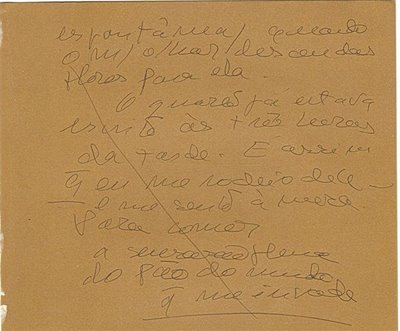 espontânea, quando
o m/ olhar descendas
flores para ela.
O quarto já estava
escuro às três horas
da tarde. E assim
q eu me rodeio dele
e me sento à mesa.
Para comer
a sensação
do pão do mundo
q me invade